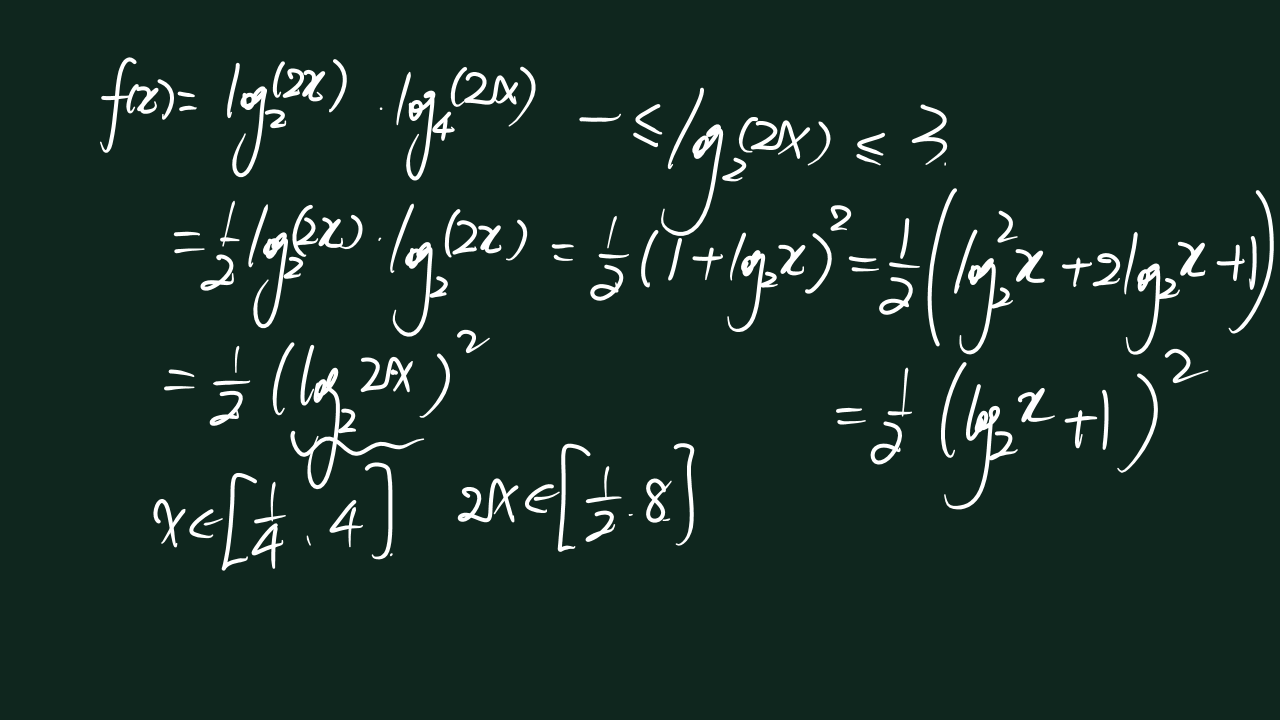 f(x) = log₂(2x) · log₄(2x) — ≤ log₂(2x) ≤ 3
= 1/2 log₂(2x) · log₂(2x) = 1/2 (1 + log₂x)² = 1/2 (log₂²x + 2log₂x + 1)
= 1/2 (log₂2x)² = 1/2 (log₂x + 1)²
x ∈ [1/4, 4] 2x ∈ [1/2, 8]